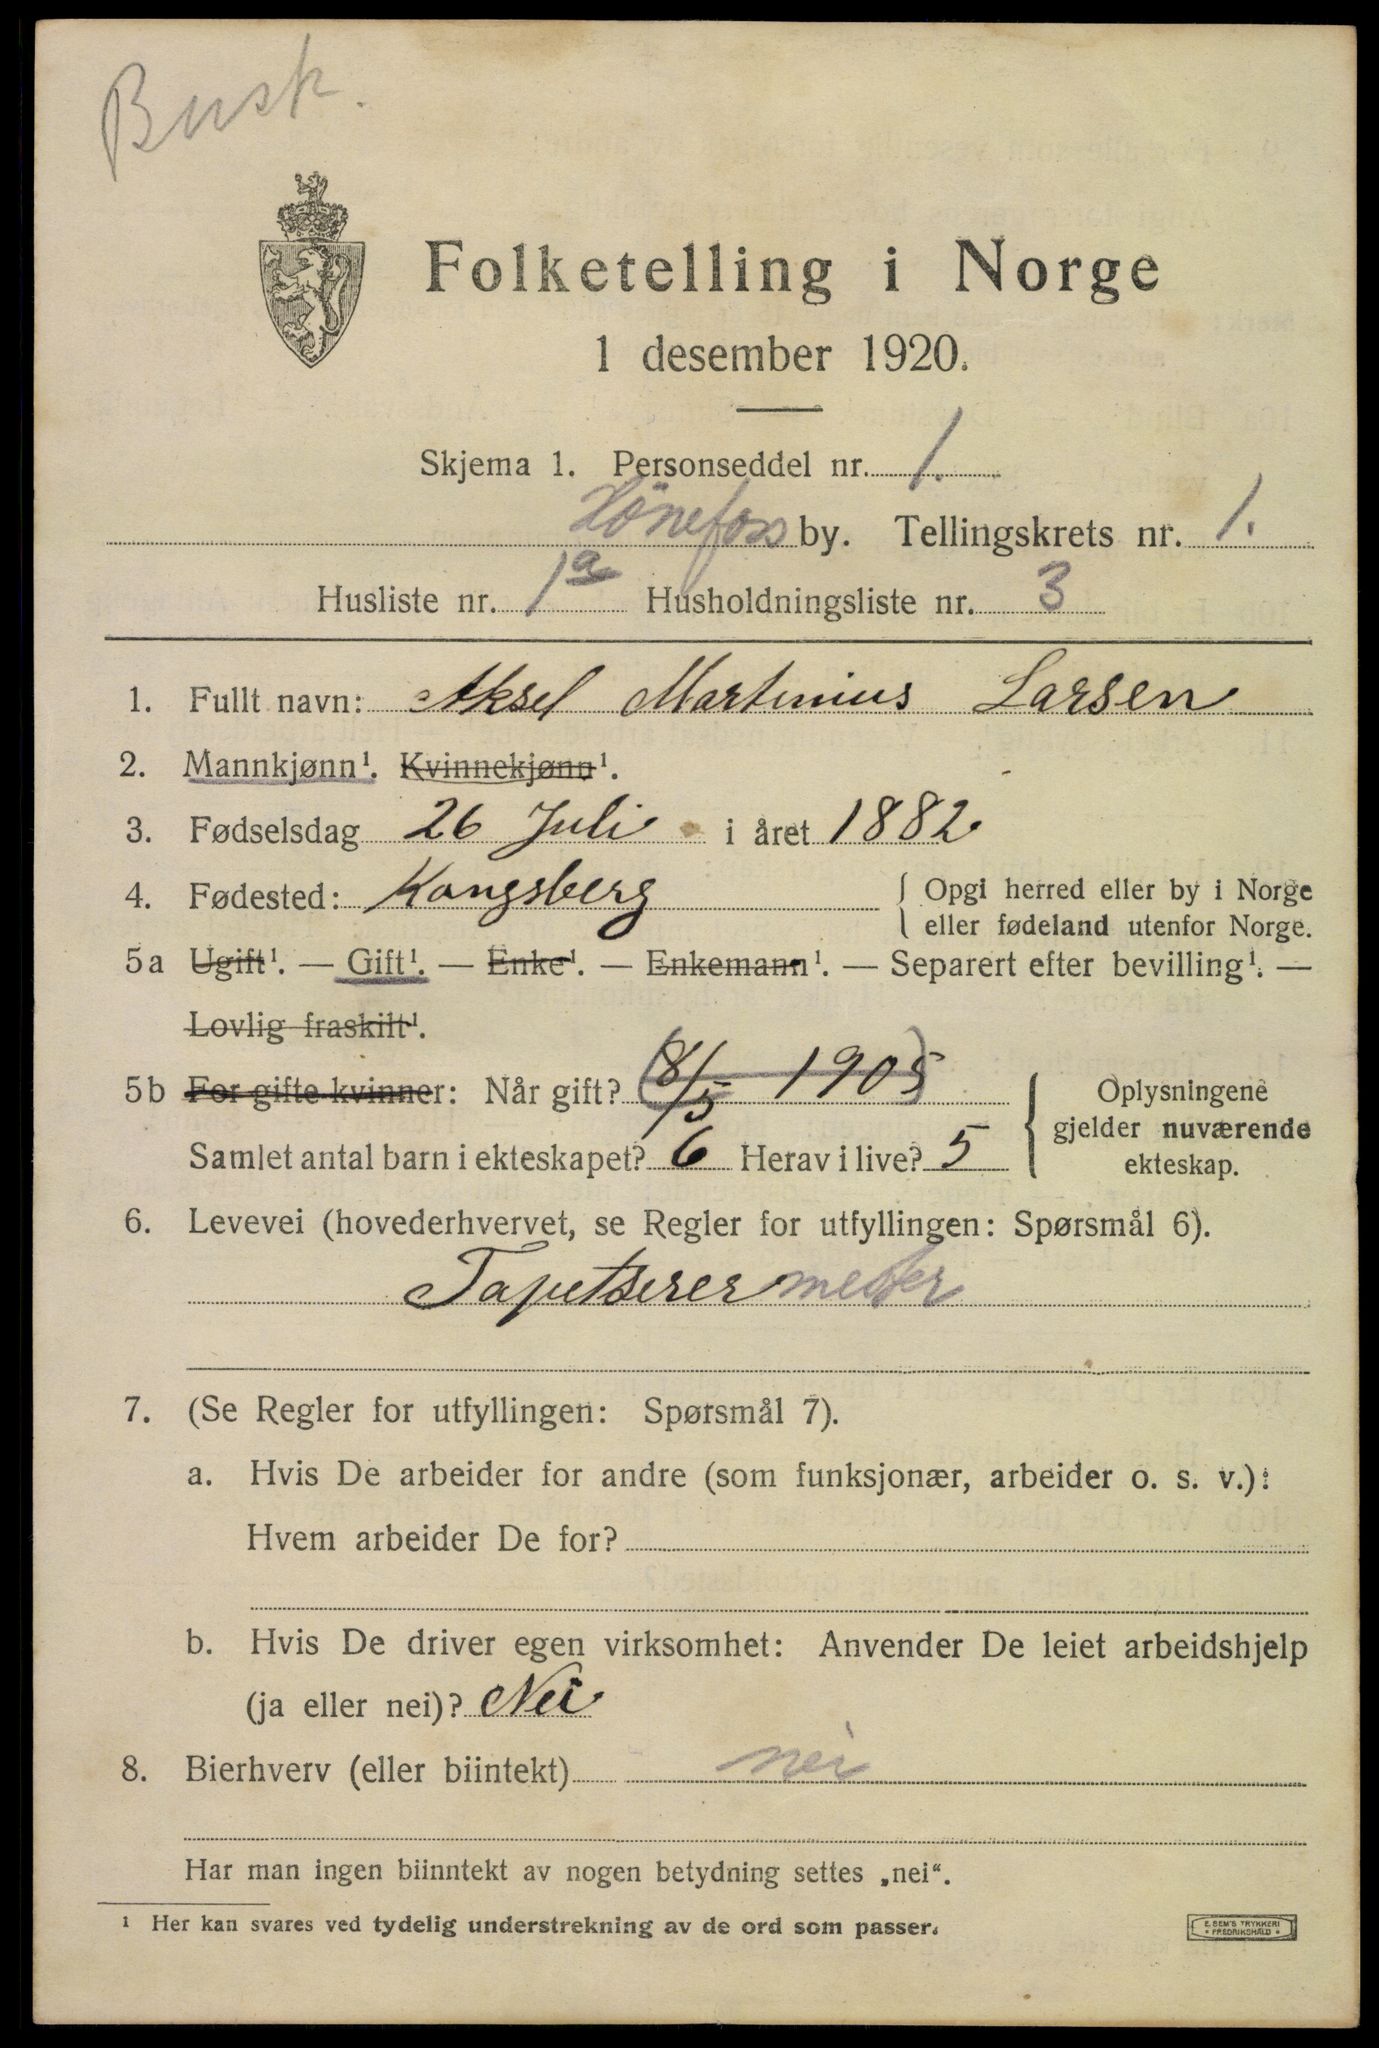 Busk.
Folketelling i Norge
1 desember 1920.
Skjema 1. Personseddel nr. 1.
Hönefoss by. Tellingskrets nr. 1.
Husliste nr. 1a Husholdningsliste nr. 3
1. Fullt navn: Aksel Martinius Larsen
2. Mannkjønn¹. Kvinnekjønn¹.
3. Fødselsdag 26 Juli i året 1882
4. Fødested: Kongsberg { Opgi herred eller by i Norge
eller fødeland utenfor Norge.
5a Ugift¹. — Gift¹. — Enke¹. — Enkemann¹. — Separert efter bevilling¹. —
Lovlig fraskilt¹.
5b For gifte kvinner: Når gift? (8/5 1905)
Samlet antal barn i ekteskapet? 6 Herav i live? 5
{ Oplysningene
gjelder nuværende
ekteskap.
6. Levevei (hovederhvervet, se Regler for utfyllingen: Spørsmål 6).
Tapetserer mester
7. (Se Regler for utfyllingen: Spørsmål 7).
a. Hvis De arbeider for andre (som funksjonær, arbeider o. s. v.):
Hvem arbeider De for?
b. Hvis De driver egen virksomhet: Anvender De leiet arbeidshjelp
(ja eller nei)? Nei
8. Bierhverv (eller biintekt) nei
Har man ingen biinntekt av nogen betydning settes „nei“.
¹ Her kan svares ved tydelig understrekning av de ord som passer.
E. SEM'S TRYKKERI
• FREDRIKSHALD •